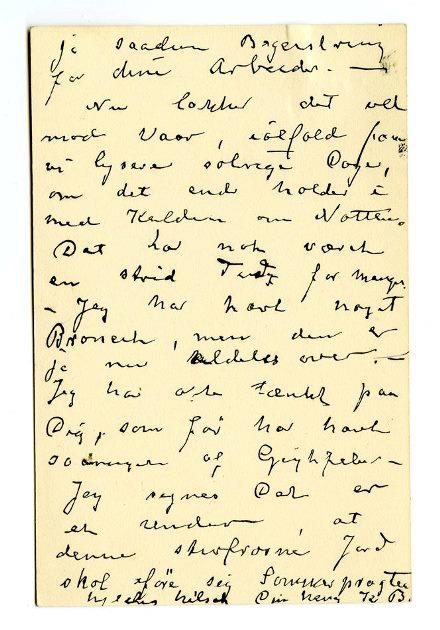 ja saadan
for dine Arbeider. —
Nu lakker det vel
mod Vaar, i
vi lysere solrige Dage,
om det end holder i
med Kulden om Natten.
Det har nok været
en strid Tid for mange.
– Jeg har havt noget
Bronchit, men den er
ja nu aldeles over. —
Jeg har ofte tænkt paa
Dig, som før har havt
saameget af Gigtfeber –
Jeg synes Det er
et under, at
denne stivfrosne Jord
skal iføre sig Sommerpragten
hilsen Din